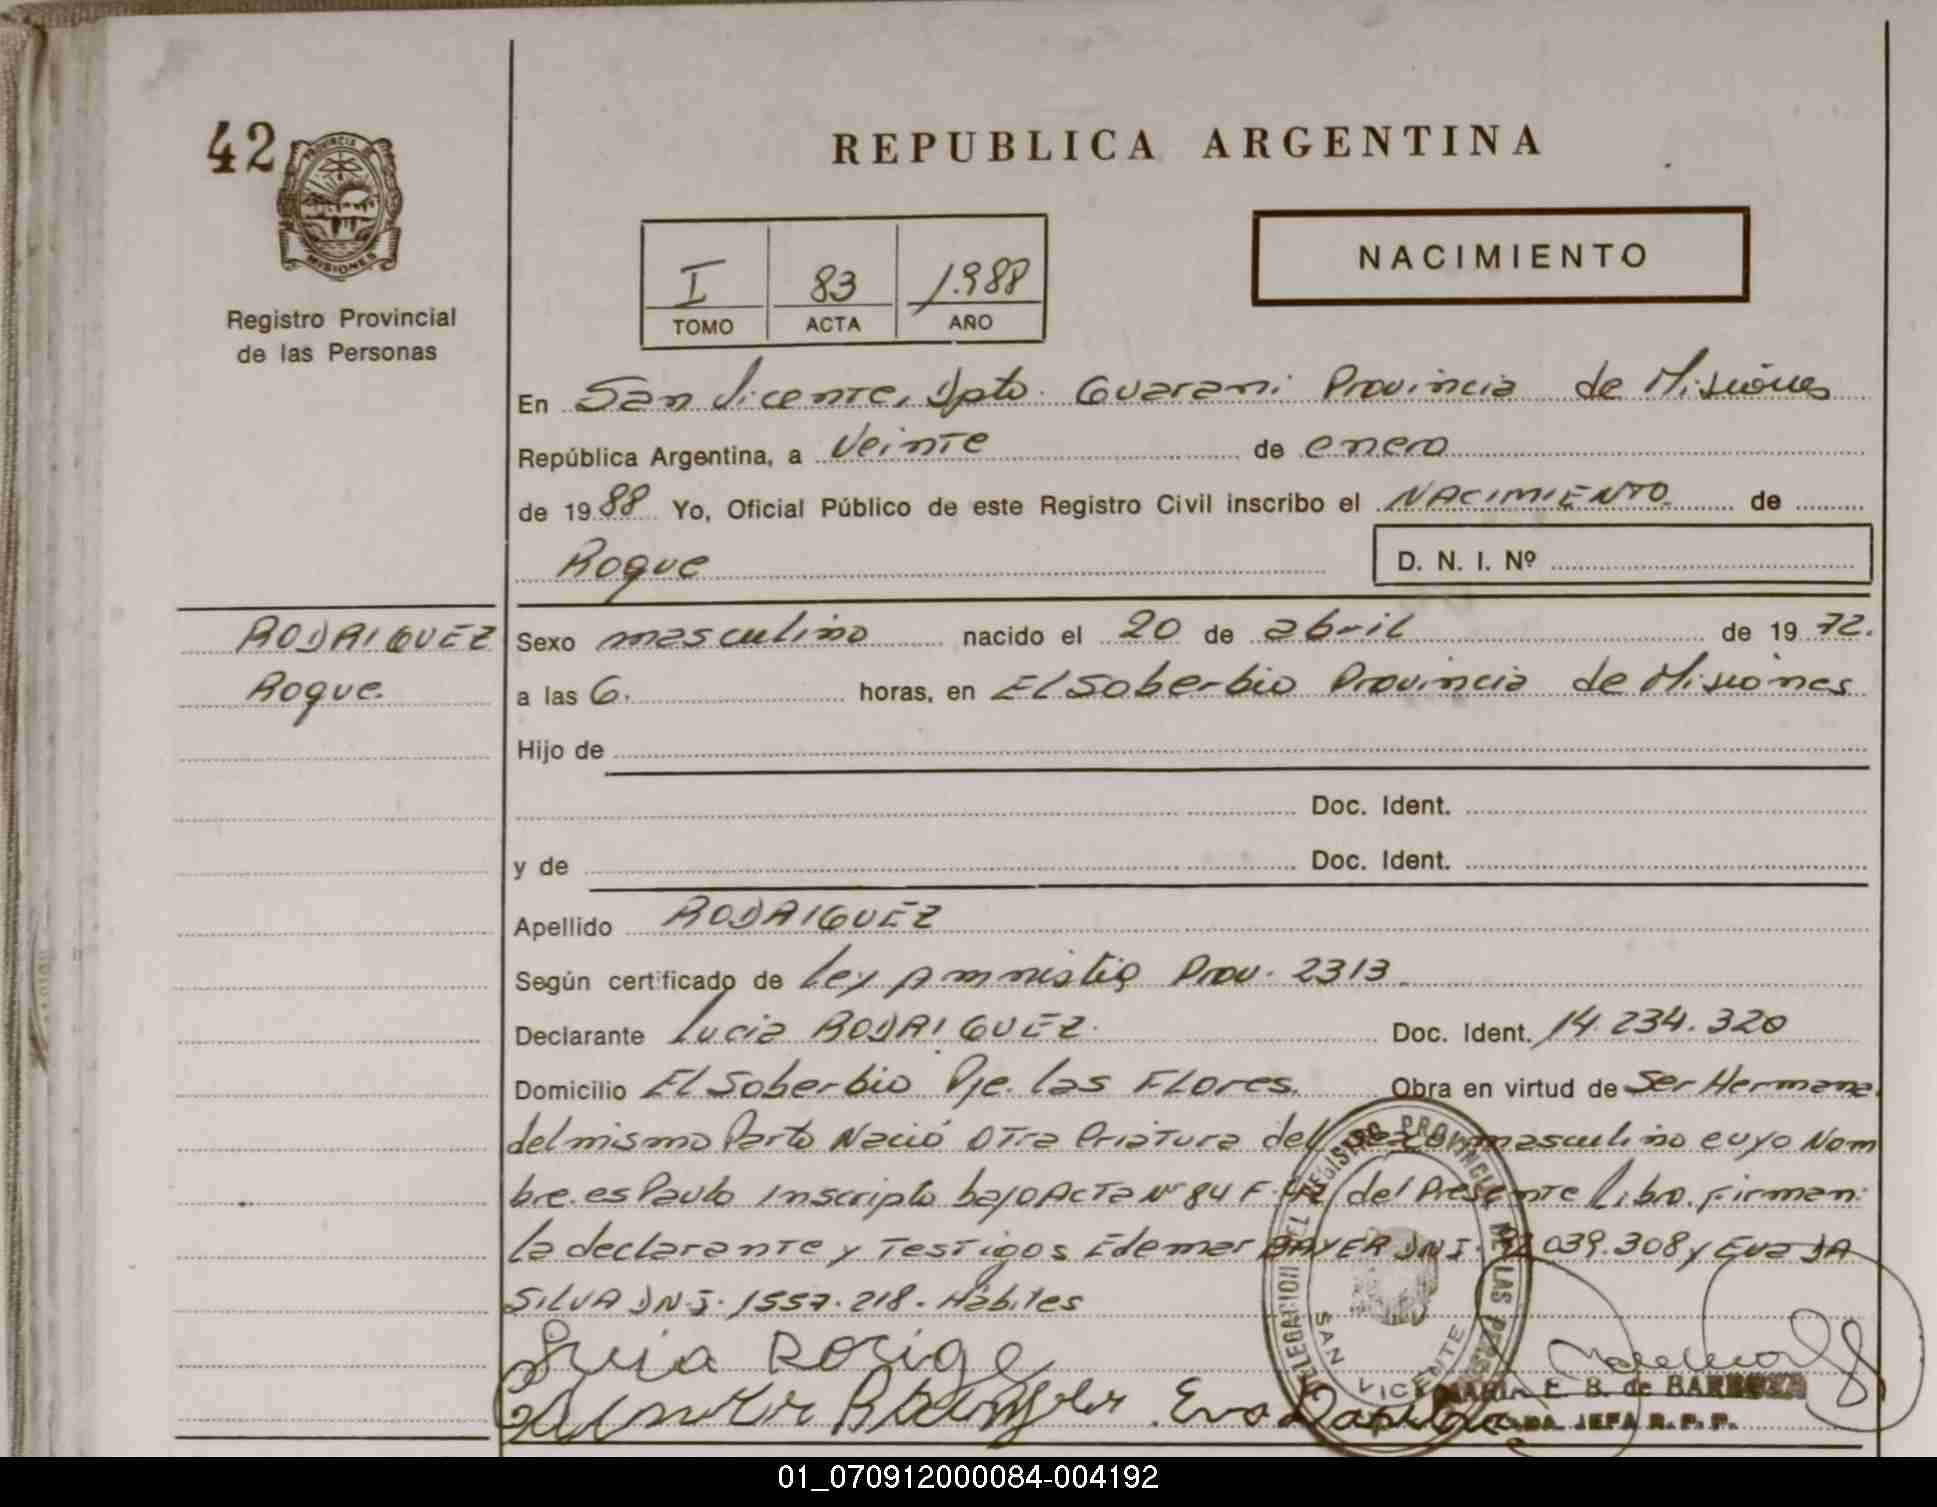 42
PROVINCIA DE
MISIONES
Registro Provincial
de las Personas
REPUBLICA ARGENTINA
I 83 1.988
TOMO ACTA AÑO
NACIMIENTO
En San Vicente, Dpto. Guarani Provincia de Misiones
República Argentina, a Veinte de enero
de 1988 Yo, Oficial Público de este Registro Civil inscribo el NACIMIENTO de
Roque D. N. I. Nº
RODRIGUEZ
Roque.
Sexo masculino nacido el 20 de abril de 1972.
a las 6. horas, en El Soberbio Provincia de Misiones
Hijo de
Doc. Ident.
y de Doc. Ident.
Apellido RODRIGUEZ
Según certificado de Ley Amnistia Prov. 2313
Declarante Lucia RODRIGUEZ. Doc. Ident. 14.234.320
Domicilio El Soberbio Pje. las Flores. Obra en virtud de Ser Hermana.
del mismo Parto Nació Otra Criatura del sexo masculino cuyo Nom
bre es Paulo Inscripto bajo Acta Nº 84 F. 42 del Presente Libro. Firman:
la declarante y Testigos Edemar BAYER DNI. 039.308 y Eva DA
SILVA DN.I. 1557.218. Hábiles
DELEGACION DEL REGISTRO PROVINCIAL DE LAS PERSONAS
SAN VICENTE
Eva
MARIA E. B. de BARBOZA
JEFA R. P. P.
01_070912000084-004192